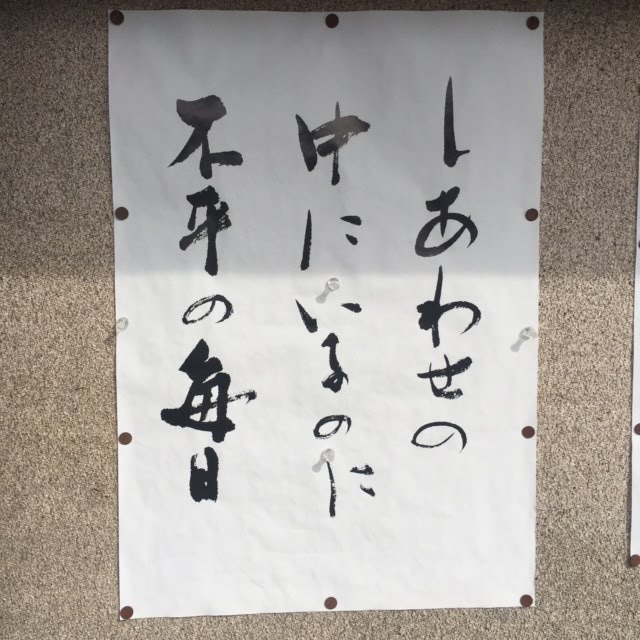 しあわせの
中にいるのに
不平の毎日